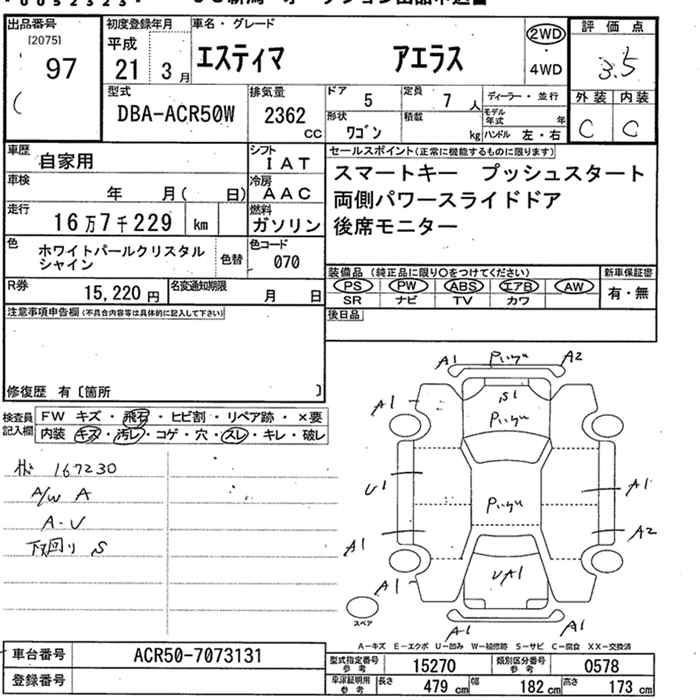 出品番号
[2075]
97
初度登録年月
平成
21 年 3 月
車名・グレード
エスティマ アエラス
2WD
・
4WD
評価点
3.5
外装 内装
C C
型式
DBA-ACR50W
排気量
2362
cc
ドア 5
定員 7 人
ディーラー・並行
形状 ワゴン
積載 kg
モデル年式 年
ハンドル 左・右
車歴 自家用
シフト IAT
車検 年 月( 日)
冷房 AAC
走行 16万7千229 km
燃料 ガソリン
色 ホワイトパールクリスタルシャイン
色替
色コード 070
R券 15,220 円
名変通知期限 月 日
セールスポイント(正常に機能するものに限ります)
スマートキー プッシュスタート
両側パワースライドドア
後席モニター
装備品(純正品に限り○をつけてください)
新車保証書
PS PW ABS エアB AW
有・無
SR ナビ TV カワ
後日品
注意事項申告欄(不具合内容等は具体的に記入して下さい)
修復歴 有〔箇所 〕
検査員記入欄
FW キズ・飛石・ヒビ割・リペア跡・×要
内装 キズ・汚レ・コゲ・穴・スレ・キレ・破レ
167230
A/W A
A-U
下回り S
A1 A2
S1
A1
U1
A1
A1
A2
A1
UA1
A1
A1
A1
スペア
A-キズ E-エクボ U-凹み W-補修跡 S-サビ C-腐食 XX-交換済
車台番号 ACR50-7073131
登録番号
型式指定番号参考 15270
類別区分番号参考 0578
車庫証明用参考 長さ 479 cm 幅 182 cm 高さ 173 cm